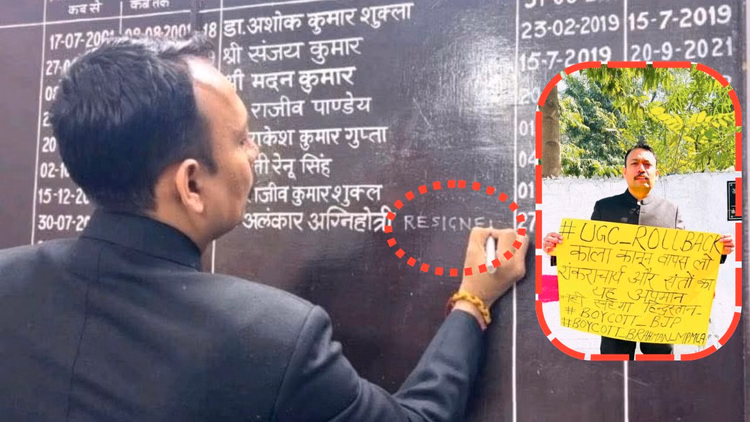 कब से कब तक
17-07-2001 08-08-2001 18 डा.अशोक कुमार शुक्ला 23-02-2019 15-7-2019
श्री संजय कुमार 15-7-2019 20-9-2021
श्री मदन कुमार
राजीव पाण्डेय
राकेश कुमार गुप्ता
रेनू सिंह
15-12- राजीव कुमार शुक्ल
30-07- अलंकार अग्निहोत्री RESIGNE
#UGC_ROLLBACK
काला कानून वापस लो
शंकराचार्य और संतों का
यह अपमान
नहीं सहेगा हिन्दुस्तान-
#BOYCOTT_BJP
#BOYCOTT_BRAHMAN_MPMLA